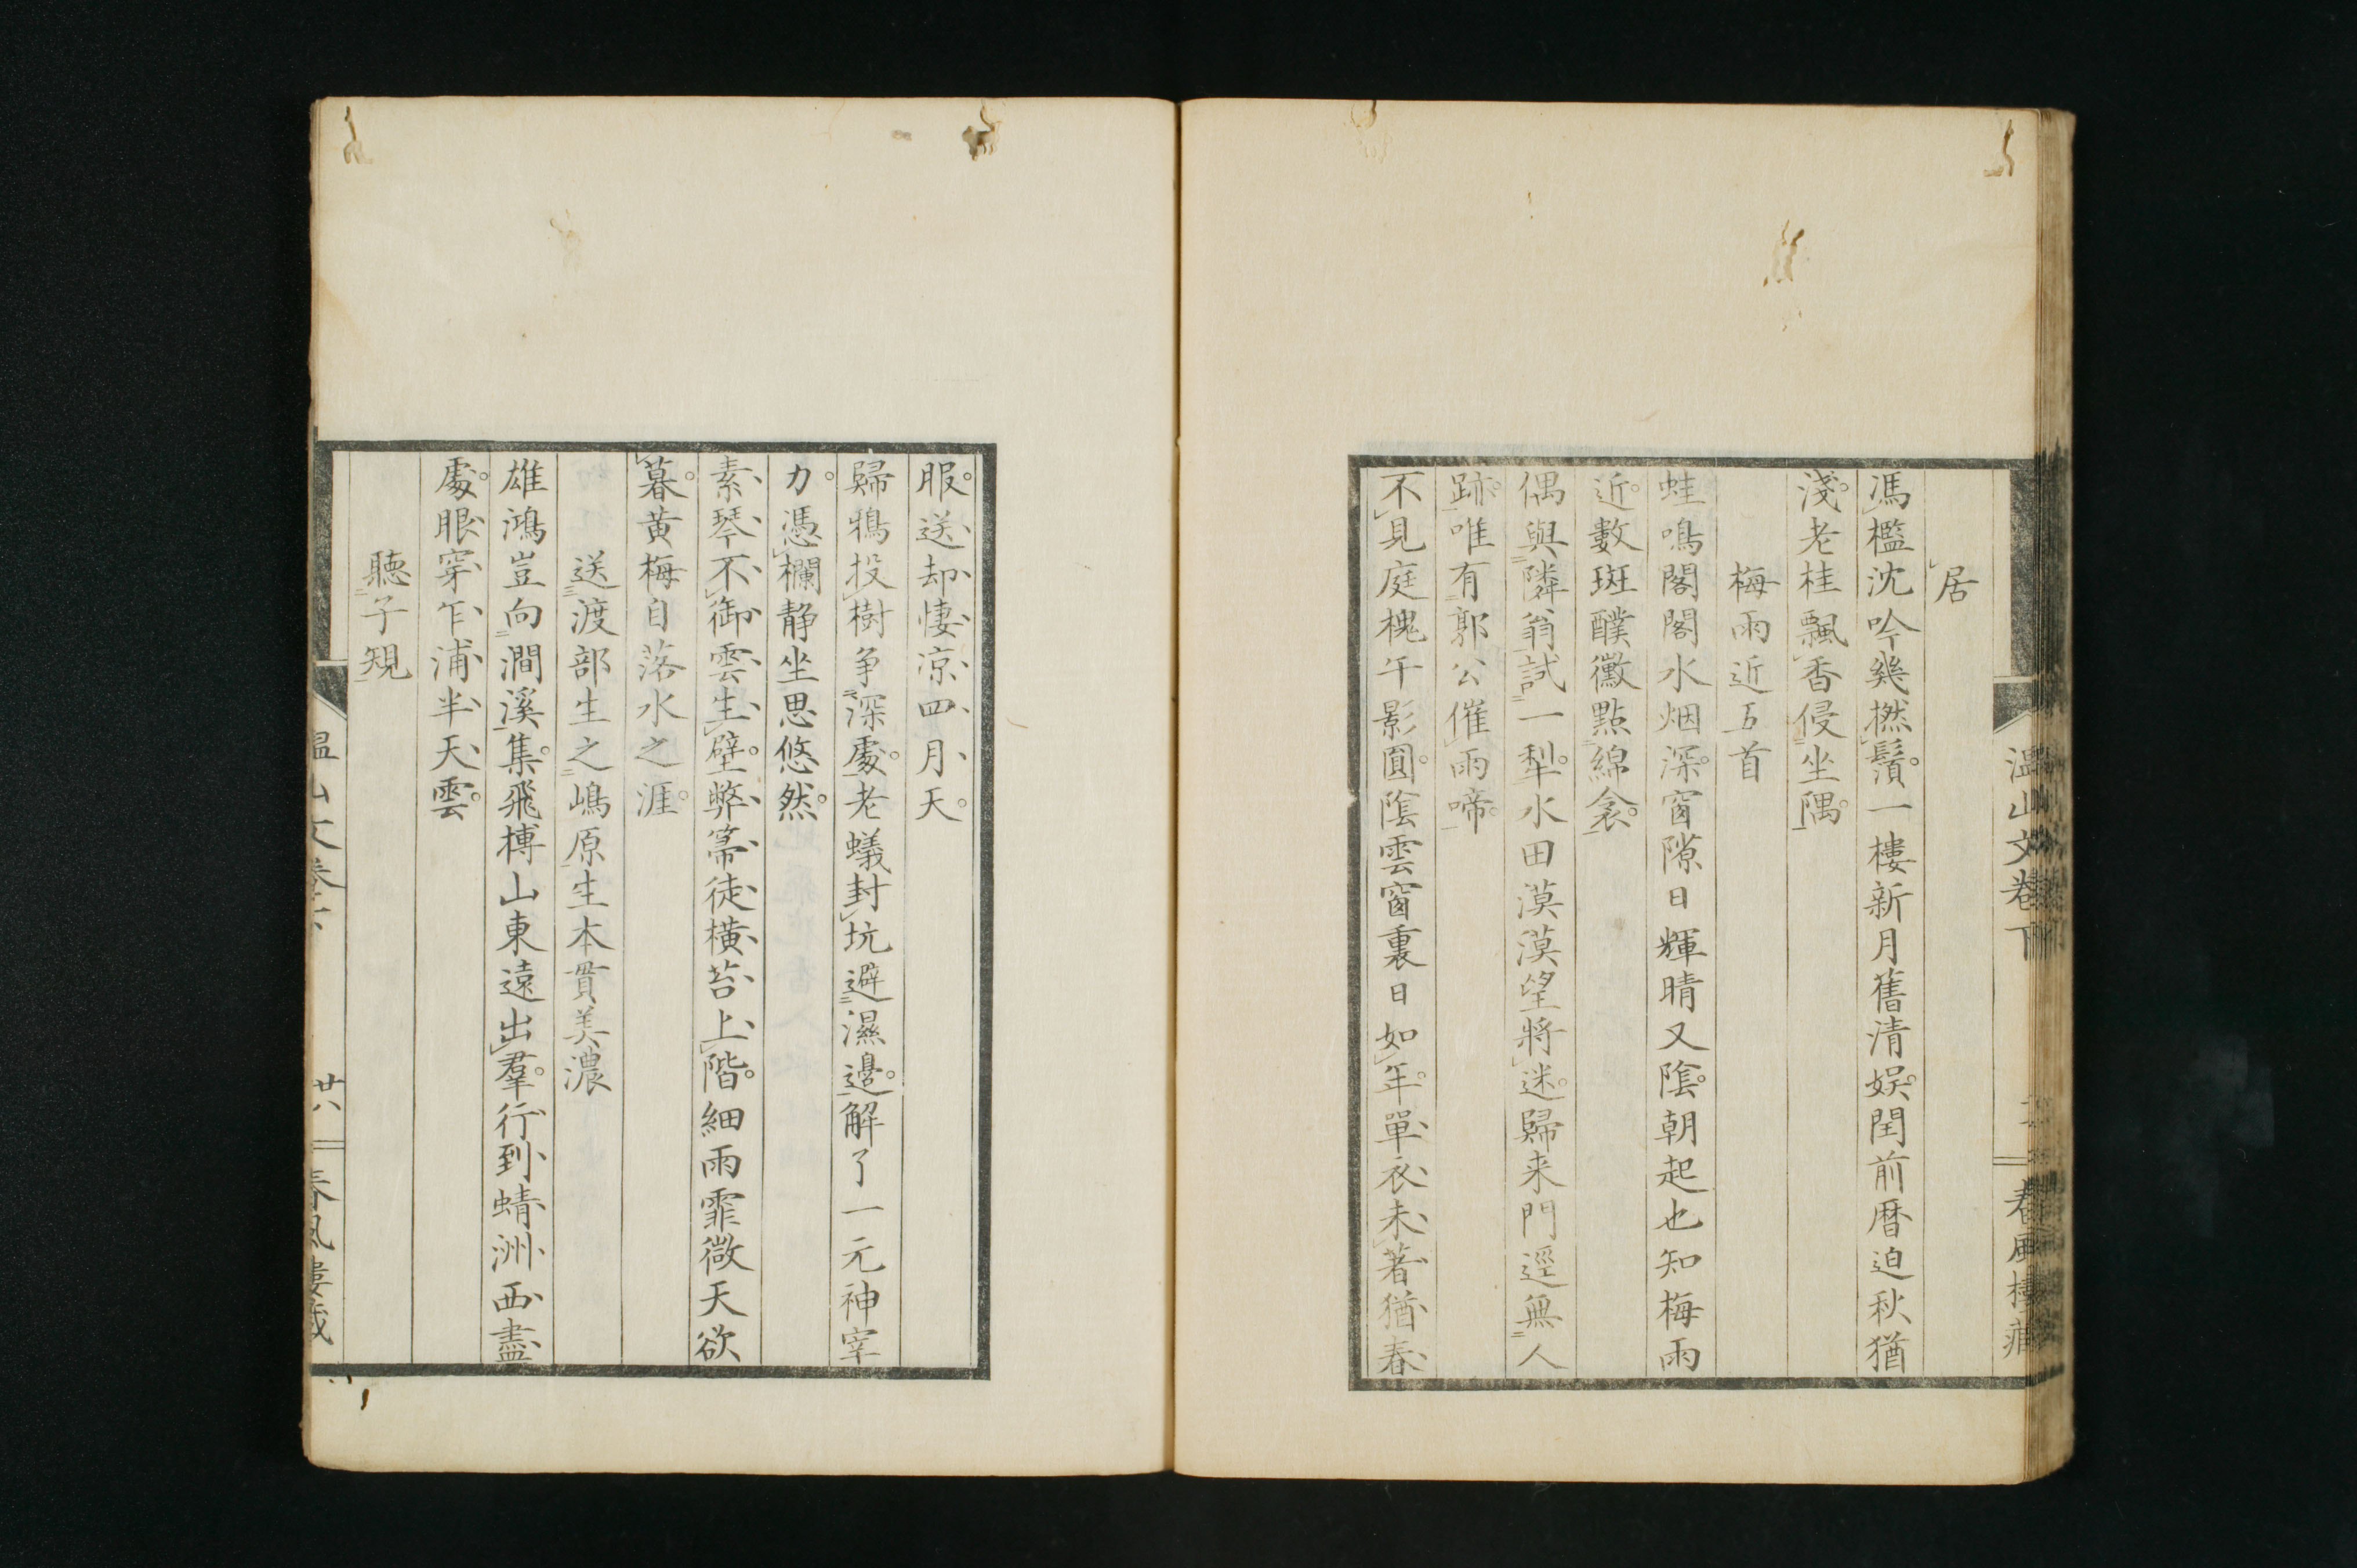 居
馮檻沈吟幾撚鬚一樓新月舊清娯閏前暦迫秋猶
淺老桂飄香侵坐隅
梅雨近五首
蛙鳴閣閣水烟深窗隙日輝晴又陰朝起也知梅雨
近數斑醭黴點綿衾
偶與隣翁試一犁水田漠漠望將迷歸来門逕無人
跡唯有郭公催雨啼
不見庭槐午影圓陰雲窗裏日如年單衣未著猶春
温山文巻下
春風樓藏
服送却悽凉四月天
歸鴉投樹争深處老蟻封坑避濕邊解了一元神宰
力憑欄静坐思悠然
素琴不御雲生壁弊帚徒横苔上階細雨霏微天欲
暮黄梅自落水之涯
送渡部生之嶋原生本貫美濃
雄鴻豈向澗溪集飛摶山東遠出羣行到蜻洲西盡
處眼穿乍浦半天雲
聽子規
温山文巻下
廿八
春風樓藏